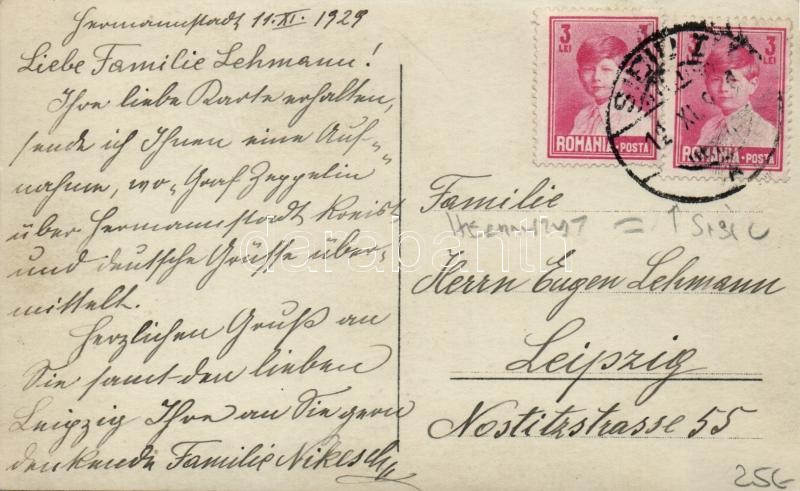 Hermannstadt 11.XI. 1929
Liebe Familie Lehmann!
Ihre liebe Karte erhalten,
sende ich Ihnen eine Auf-
nahme, wo „Graf Zeppelin"
über Hermannstadt kreist
und deutsche Grüsse über-
mittelt.
Herzlichen Gruß an
Sie samt den lieben
Leipzig Ihre an Sie gern
denkende Familie Nikesch
3 LEI
ROMANIA • POSTA
3 LEI 3
ROMANIA • POSTA
Familie
Herrn Eugen Lehmann
Leipzig
Nostitzstrasse 55
darabanth
25€